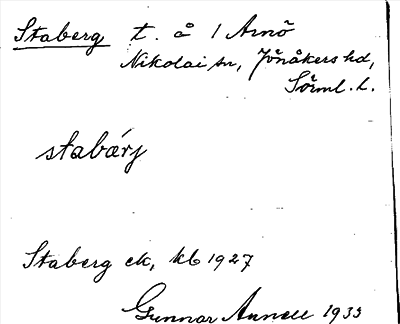 Staberg t. å 1 Arnö
Nikolai sn, Jönåkers hd,
Sörml. l.
stabærj
Staberg ek, kb 1927
Gunnar 1933